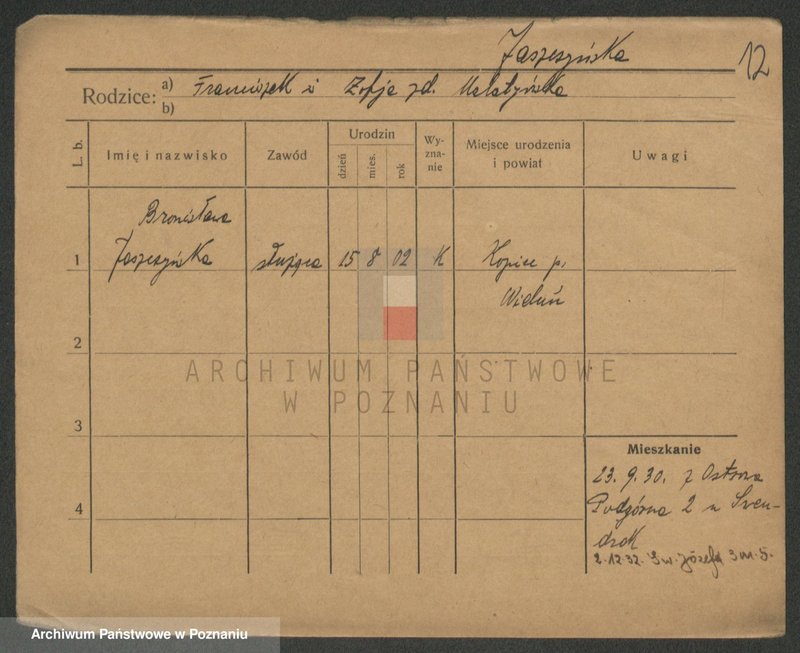 Jaszczyńska
12
Rodzice: a) Franciszek i Zofja zd.
b)
L. b.
Imię i nazwisko
Zawód
Urodzin
dzień
mies.
rok
Wy-
zna-
nie
Miejsce urodzenia
i powiat
Uwagi
Bronisława
1 Jaszczyńska służąca 15 8 02 K Kopiec p.
Wieluń
2
ARCHIWUM PAŃSTWOWE
W POZNANIU
3
Mieszkanie
23. 9. 30. z Ostrowa
4 Podgórna 2 u Swen-
drak
2.12.32. Św. Józefa 3 m. 5.
Archiwum Państwowe w Poznaniu